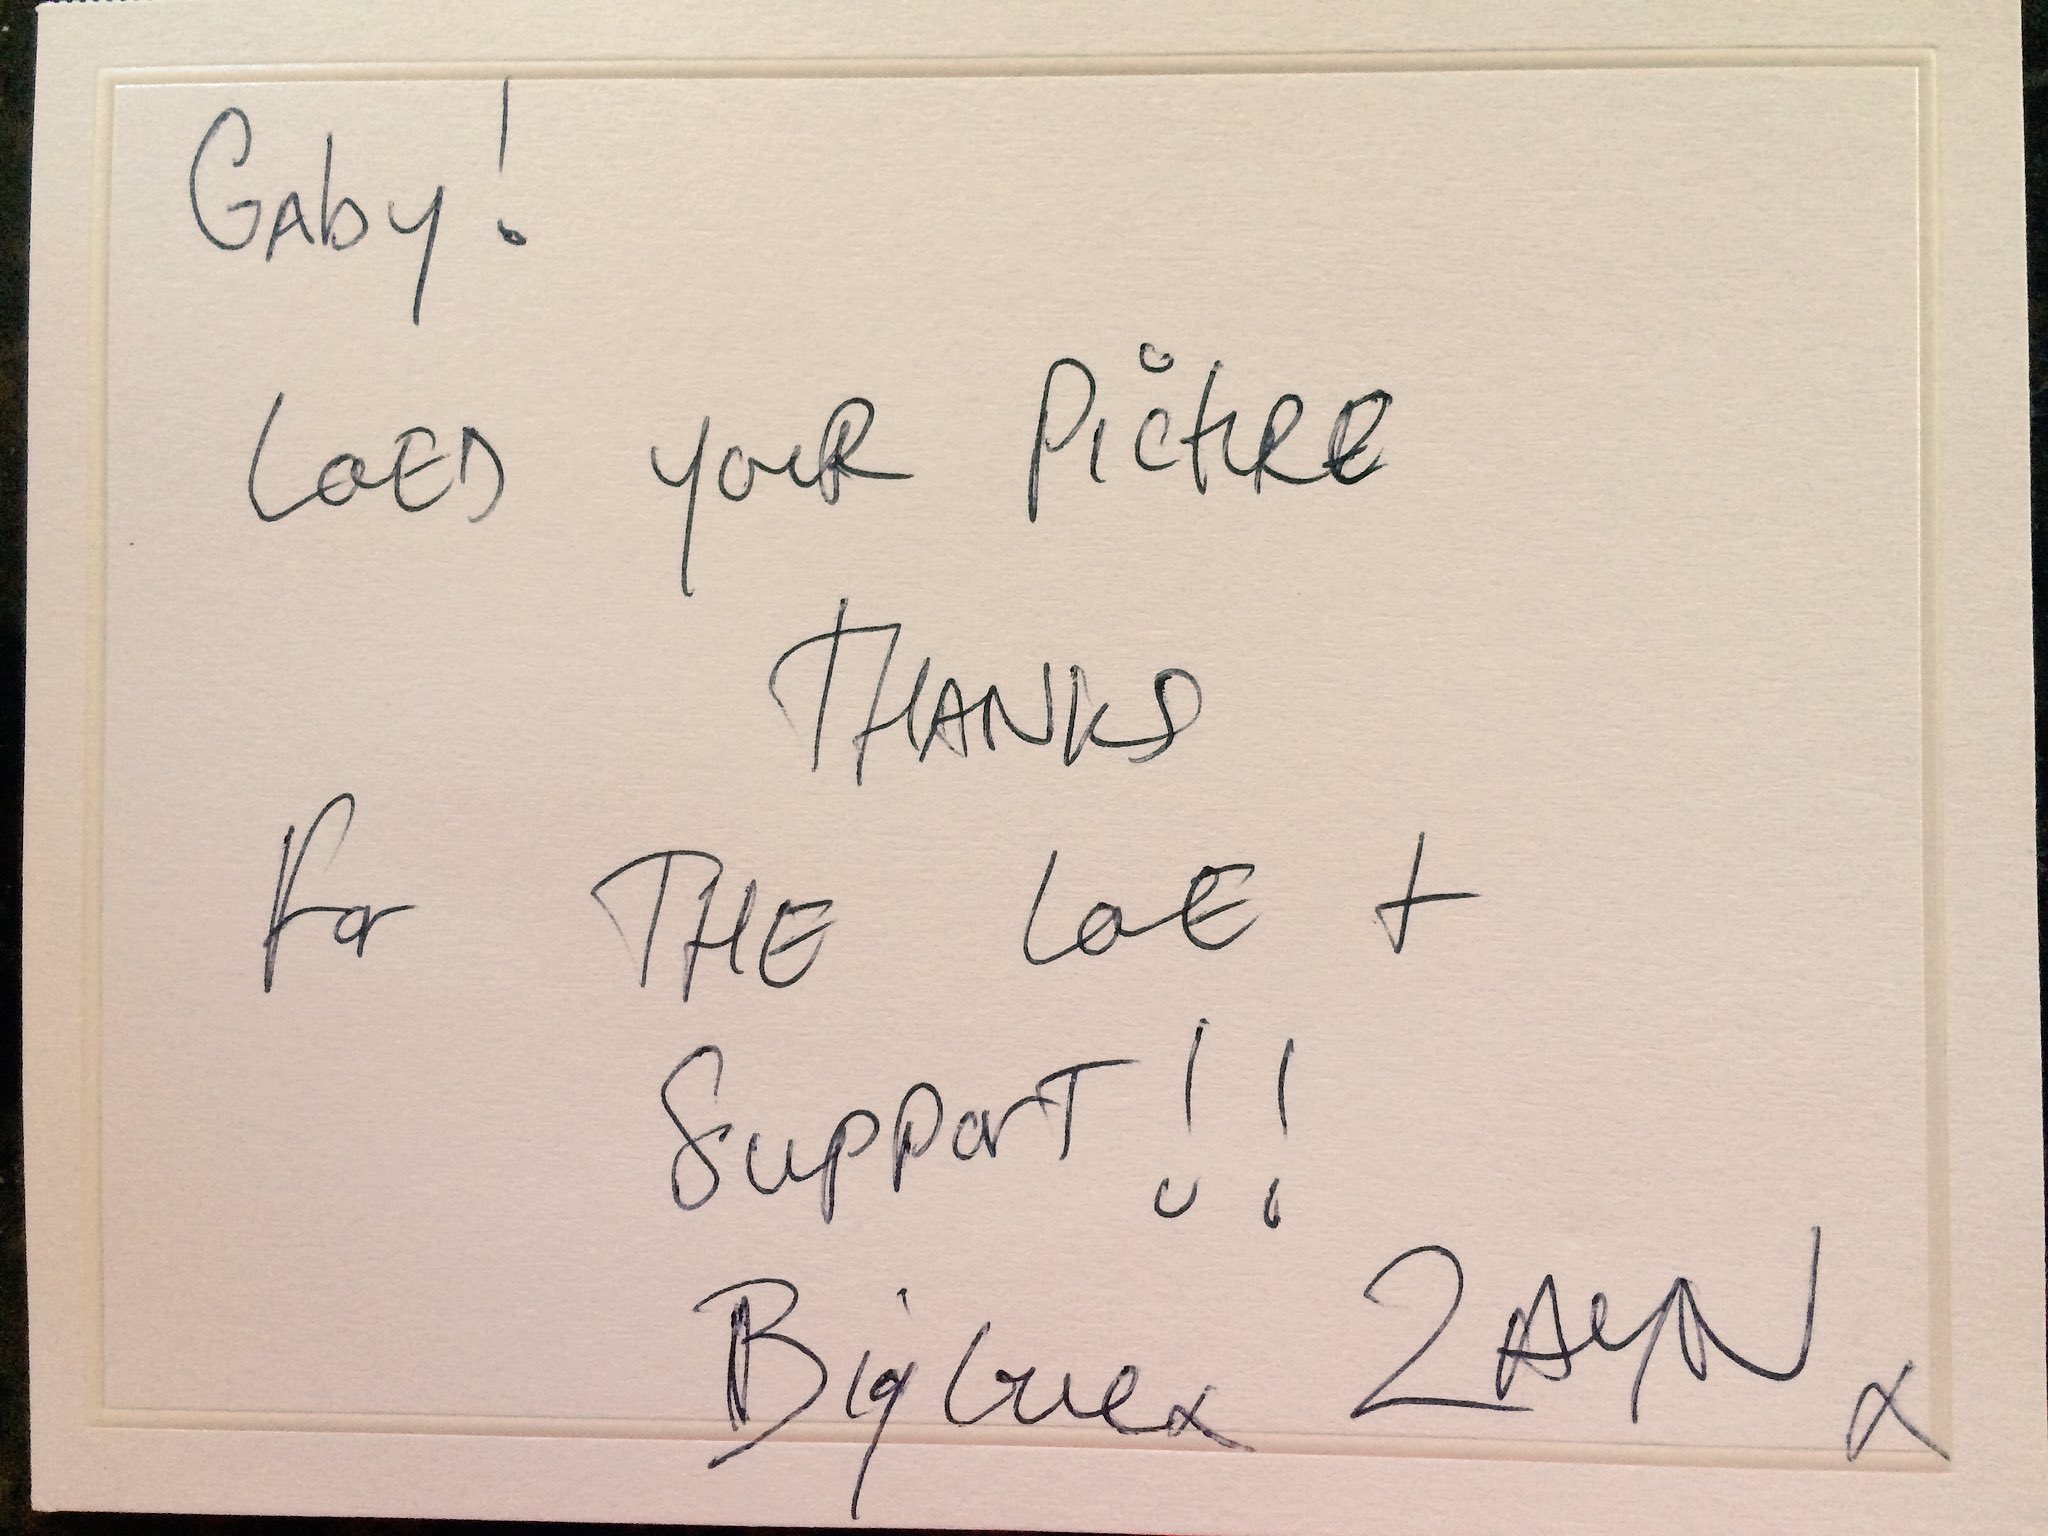 GAby!
LOVED your PictuRE
THANKS
For THE LOVE +
SupporT!!
Big Love x ZAYN x